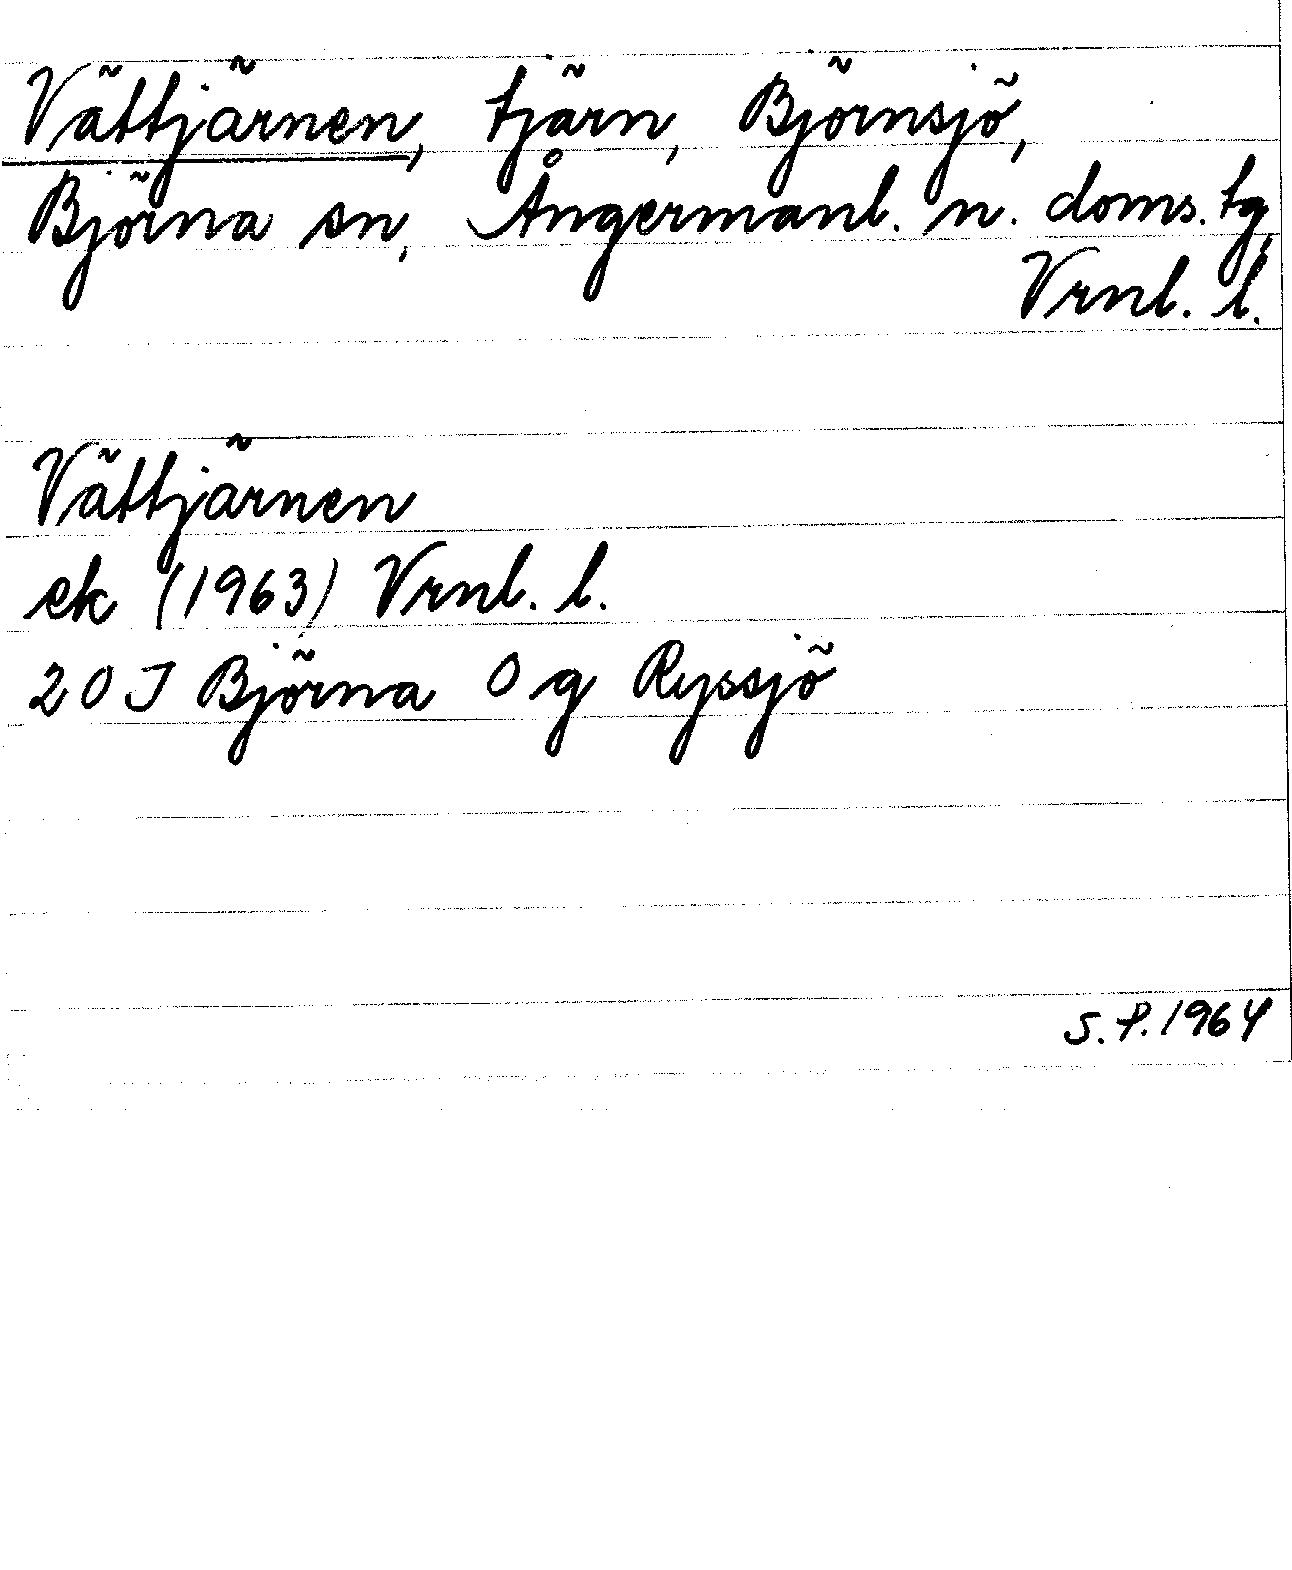 Vättjärnen, tjärn, Björnsjö,
Björna sn, Ångermanl. n. doms. tg,
Vrnl. l.
Vättjärnen
ek (1963) Vrnl. l.
20 J Björna 0 g Ryssjö
S. P. 1964